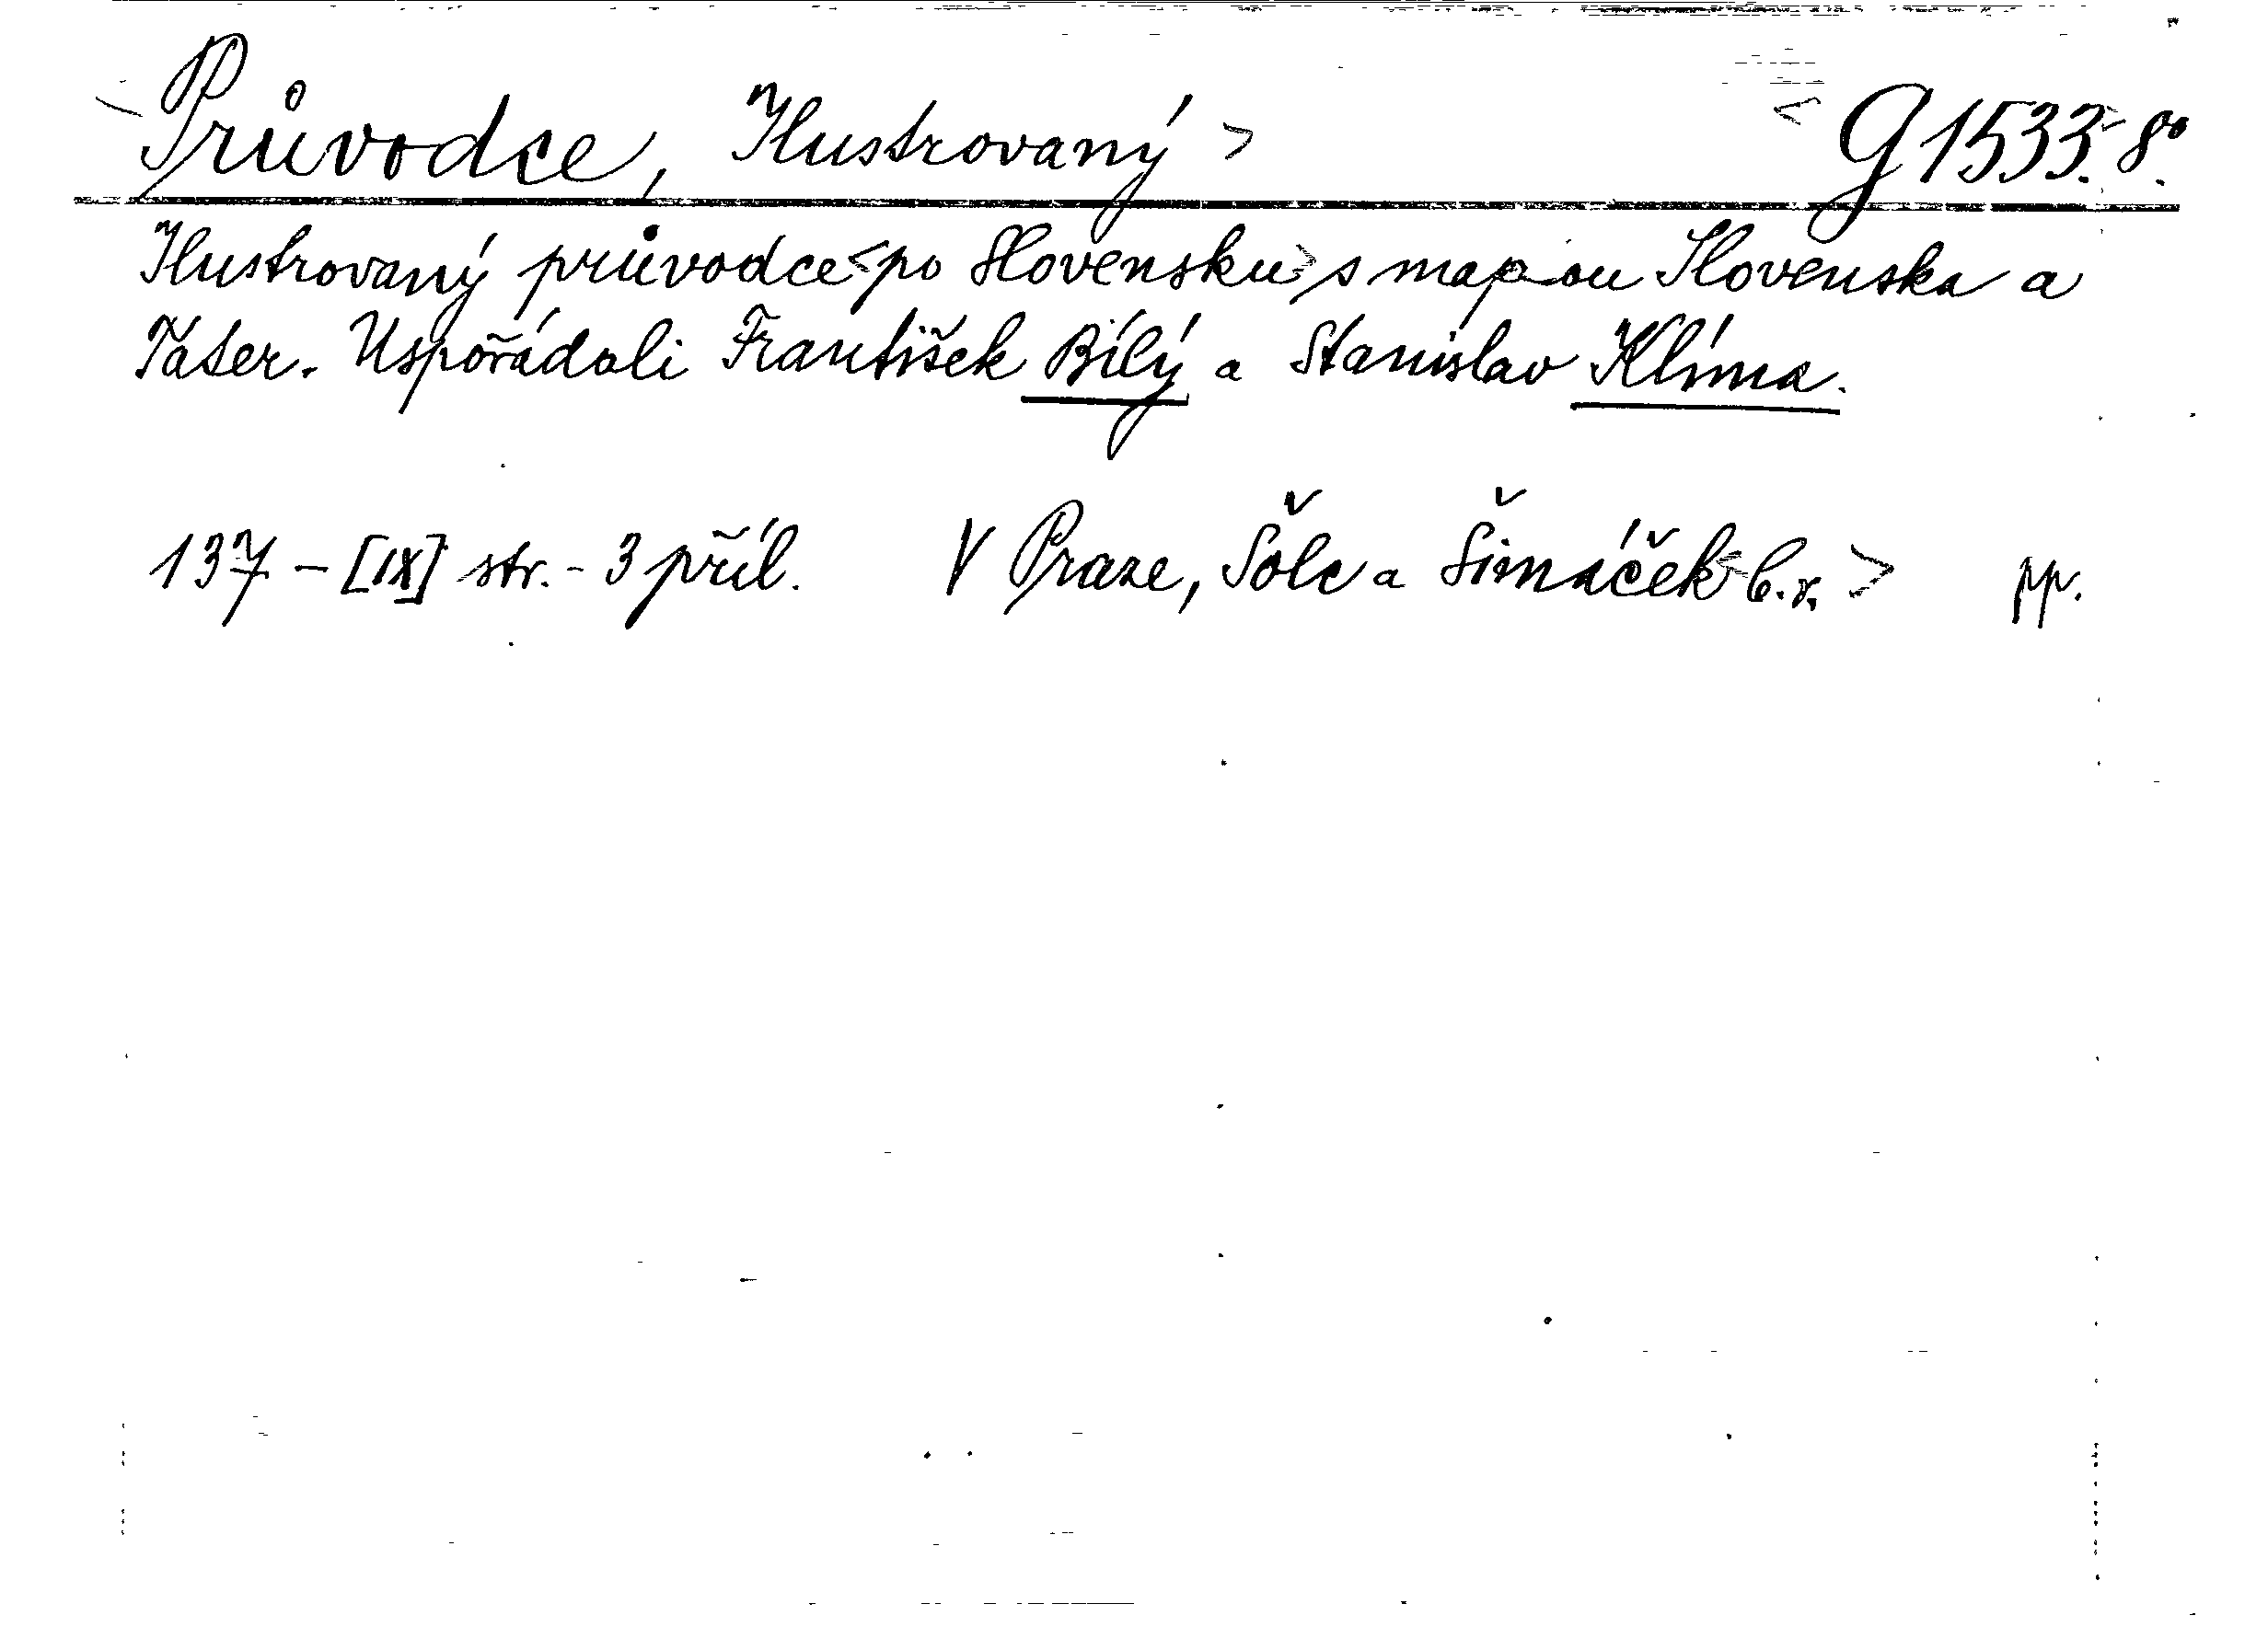 <Průvodce, Ilustrovaný> <G 1533.> 8º.
Ilustrovaný průvodce <po Slovensku> s mapou Slovenska a
Tater. Uspořádali František Bílý a Stanislav Klíma.
137 - [IX] str. - 3 příl. V Praze, Šolc a Šimáček <b.r.> pp.